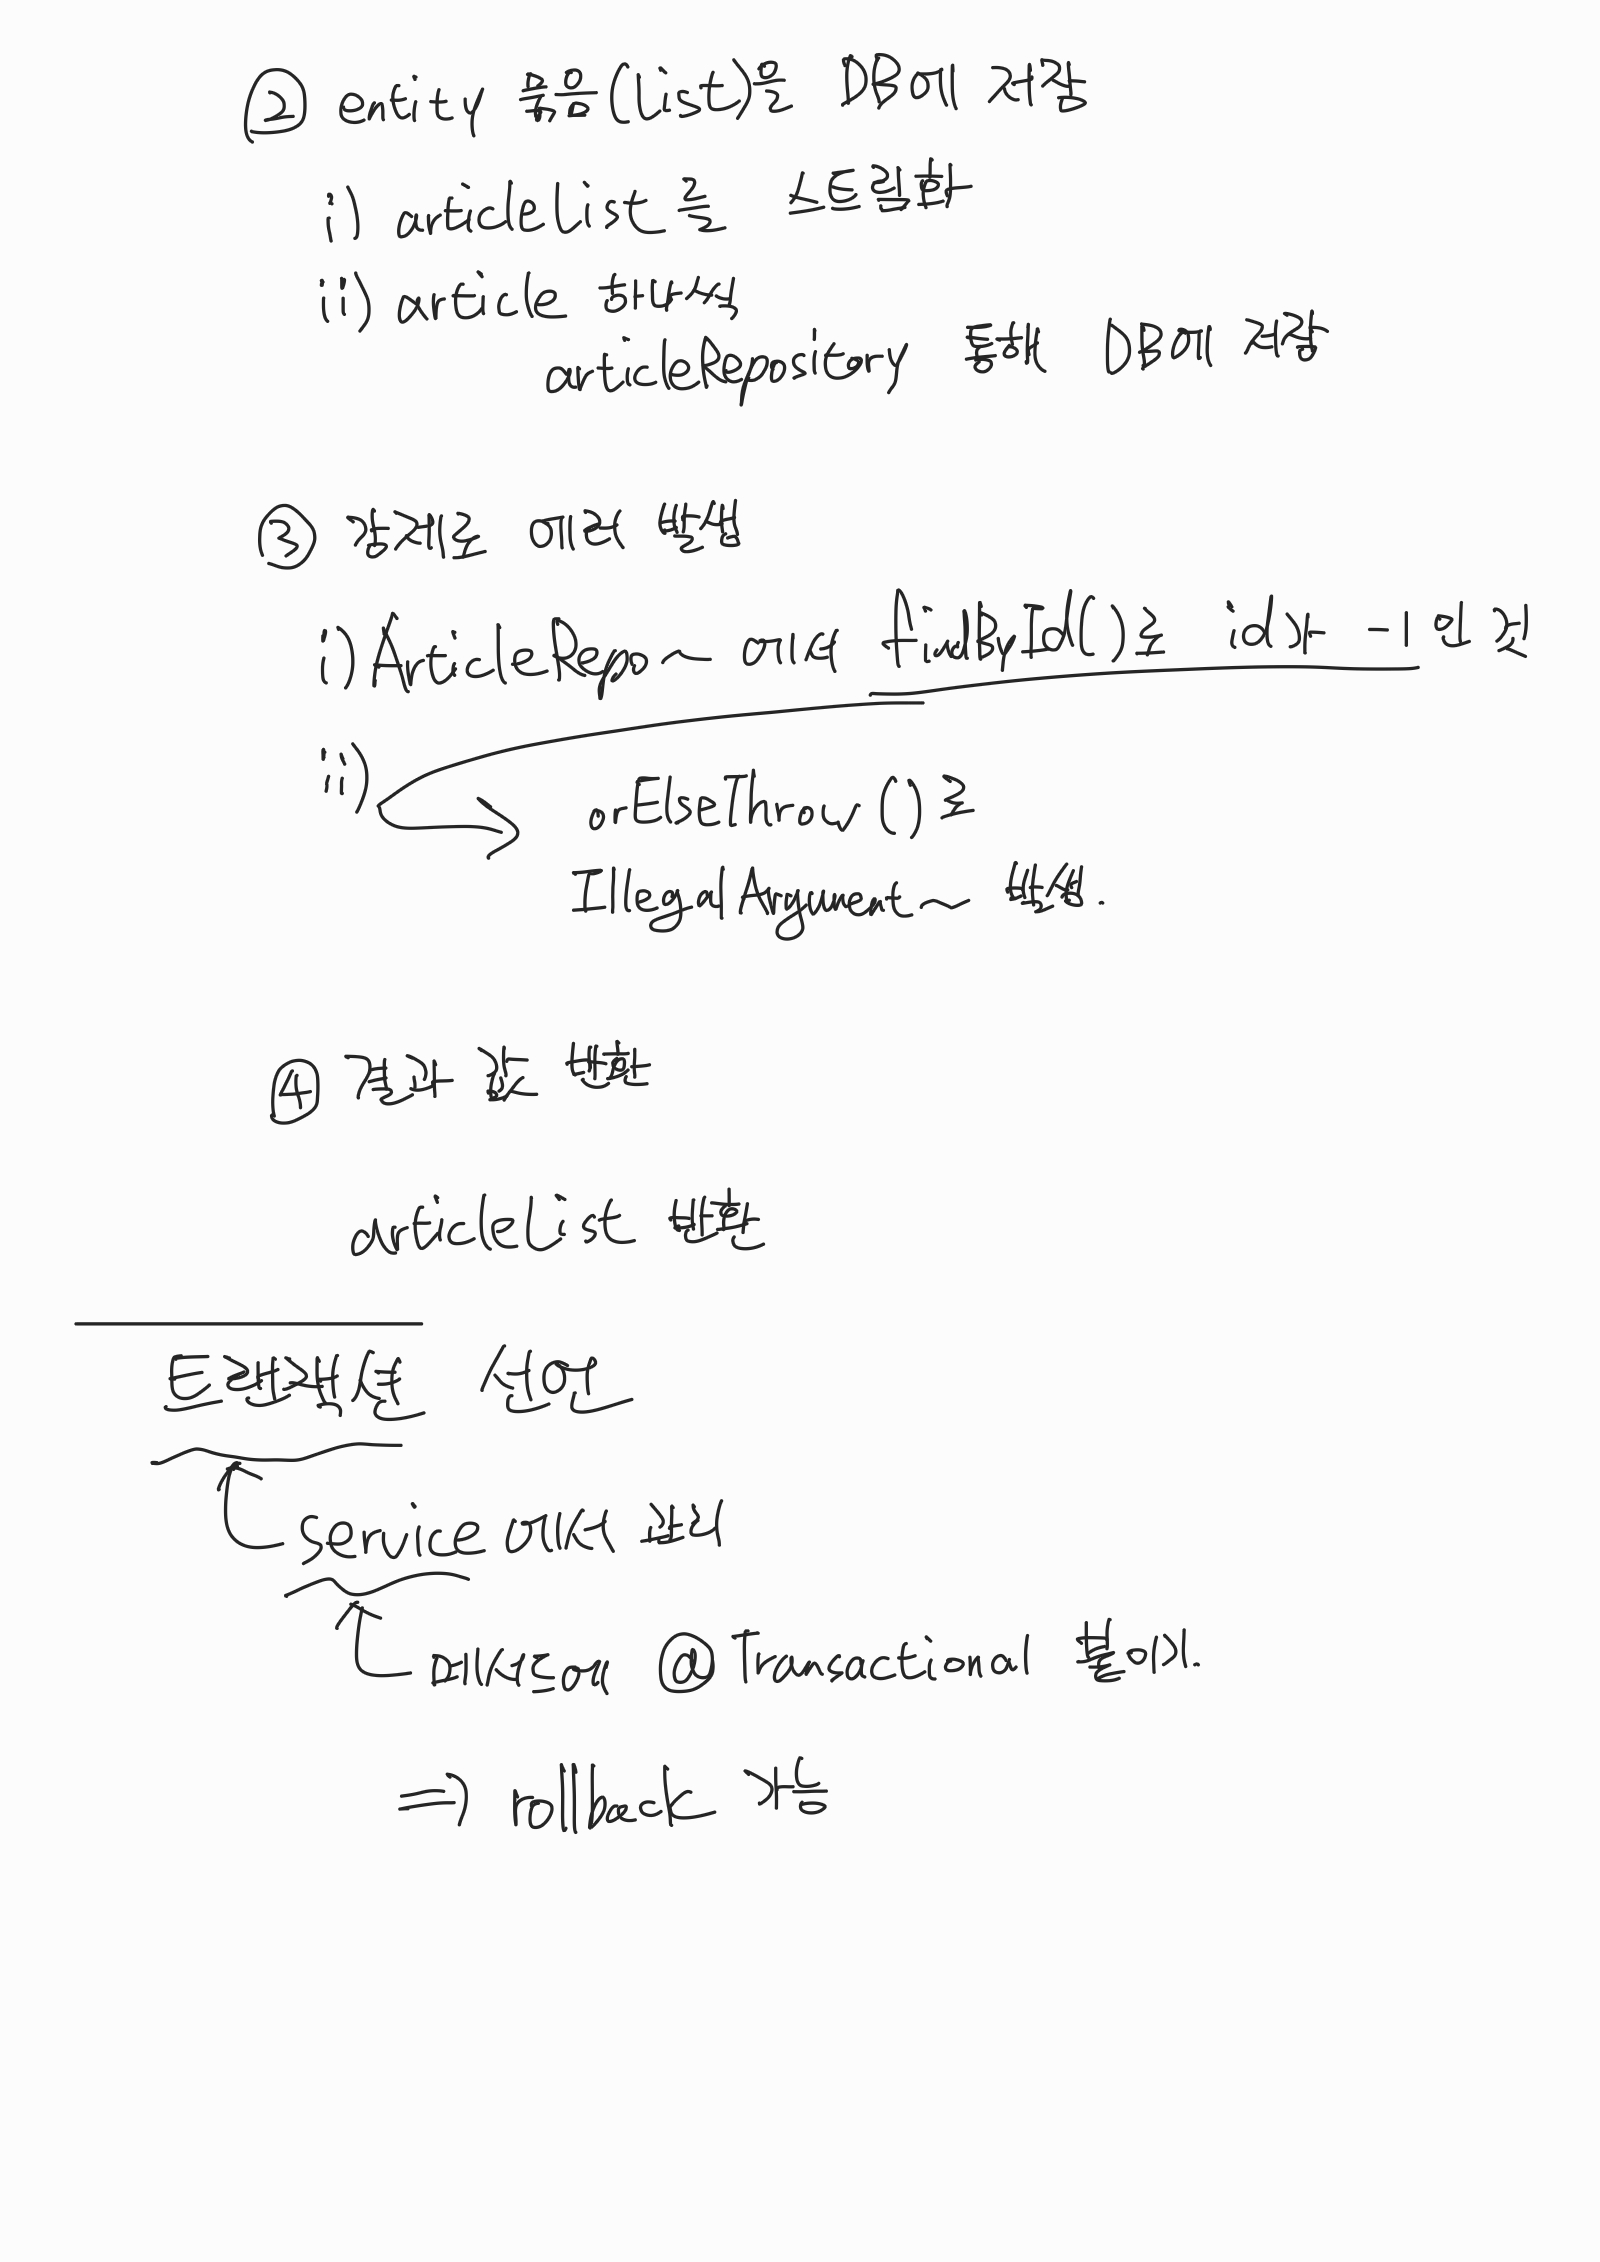 ② entity 묶음(list)을 DB에 저장
i) articleList를 스트림화
ii) article 하나씩
articleRepository 통해 DB에 저장
③ 강제로 에러 발생
i) ArticleRepo~ 에서 findById()로 id가 -1인 것
ii)
orElseThrow()로
IllegalArgument~ 발생.
④ 결과 값 반환
articleList 반환
트랜잭션 선언
service에서 관리
메서드에 @Transactional 붙이기.
=> rollback 가능